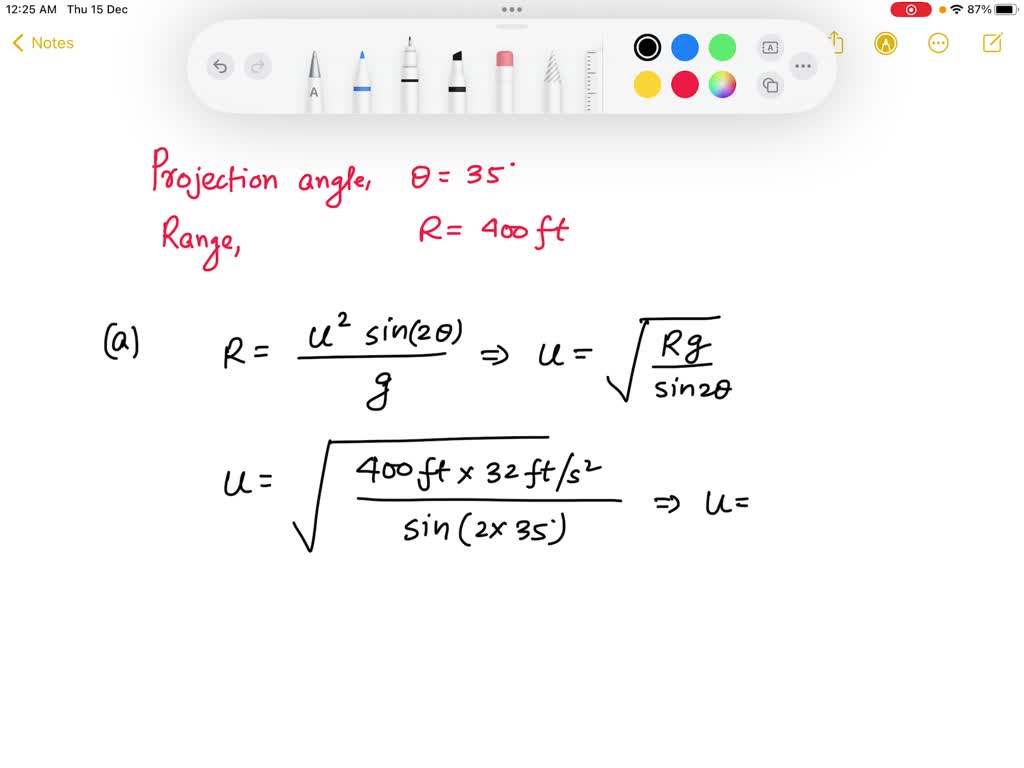 12:25 AM Thu 15 Dec
87%
Notes
A A
Projection angle, θ = 35°
Range, R = 400 ft
(a) R = u² sin(2θ) / g ⇒ u = √(Rg / sin2θ)
u = √(400 ft × 32 ft/s² / sin(2×35°)) ⇒ u =